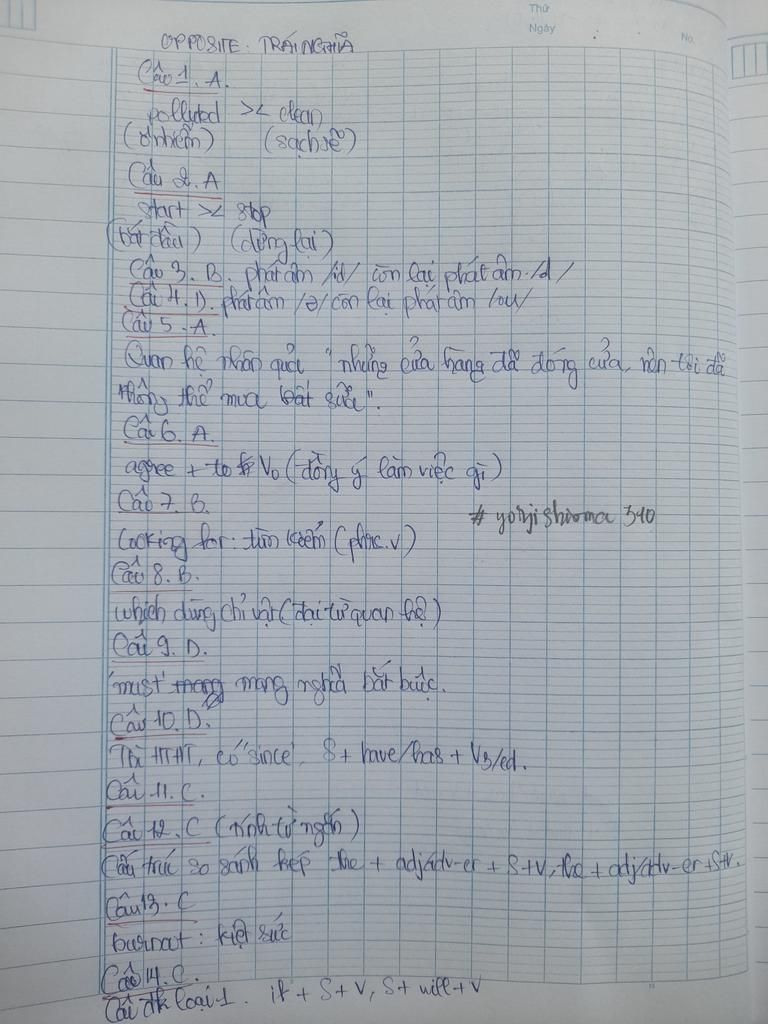 Thứ
Ngày
No.
OPPOSITE: TRÁI NGHĨA
Câu 1. A.
polluted >< clean
(ô nhiễm) (sạch sẽ)
Câu 2. A
start >< stop
(bắt đầu) (dừng lại)
Câu 3. B. phát âm /id/ còn lại phát âm /d/
Câu 4. D. phát âm /ə/ còn lại phát âm /ou/
Câu 5. A.
Quan hệ nhân quả "những cửa hàng đã đóng cửa, nên tôi đã
không thể mua sữa".
Câu 6. A.
agree + to V0 (đồng ý làm việc gì)
Câu 7. B.
# yorjishioma 340
Looking for: tìm kiếm (phrc.v)
Câu 8. B.
which dùng chỉ vật (đại từ quan hệ)
Câu 9. D.
'must' mang nghĩa bắt buộc.
Câu 10. D.
Thì HTHT, có "since", S + have/has + V3/ed.
Câu 11. C.
Câu 12. C (tính từ ngắn)
Cấu trúc so sánh kép the + adj/adv-er + S+V, the + adj/adv-er + S+V.
Câu 13. C
burnout: kiệt sức
Câu 14. C.
Câu đk loại 1. if + S + V, S + will + V